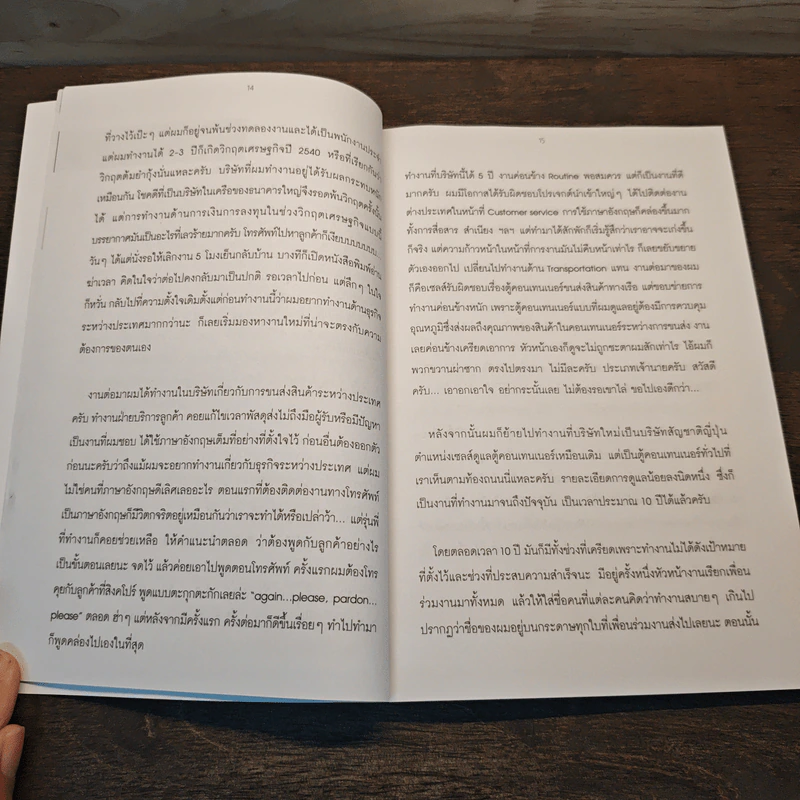 14
ที่วางไว้เป๊ะๆ แต่ผมก็อยู่จนพ้นช่วงทดลองงานและได้เป็นพนักงานประจำ
แต่ผมทำงานได้ 2-3 ปีก็เกิดวิกฤตเศรษฐกิจปี 2540 หรือที่เรียกกันว่า
วิกฤตต้มยำกุ้งนั่นแหละครับ บริษัทที่ผมทำงานอยู่ได้รับผลกระทบหนัก
เหมือนกัน โชคดีที่เป็นบริษัทในเครือของธนาคารใหญ่จึงรอดพ้นวิกฤตครั้งนั้น
ได้ แต่การทำงานด้านการเงินการลงทุนในช่วงวิกฤตเศรษฐกิจแบบนี้
บรรยากาศมันเป็นอะไรที่เลวร้ายมากครับ โทรศัพท์ไปหาลูกค้าก็เงียบบบบบบบ...
วันๆ ได้แต่นั่งรอให้เลิกงาน 5 โมงเย็นกลับบ้าน บางทีก็เปิดหนังสือพิมพ์อ่าน
ฆ่าเวลา คิดในใจว่าต่อไปคงกลับมาเป็นปกติ รอเวลาไปก่อน แต่ลึกๆ ในใจ
ก็หวั่น กลับไปที่ความตั้งใจเดิมตั้งแต่ก่อนทำงานนี้ว่าผมอยากทำงานด้านธุรกิจ
ระหว่างประเทศมากกว่านะ ก็เลยเริ่มมองหางานใหม่ที่น่าจะตรงกับความ
ต้องการของตนเอง
งานต่อมาผมได้ทำงานในบริษัทเกี่ยวกับการขนส่งสินค้าระหว่างประเทศ
ครับ ทำงานฝ่ายบริการลูกค้า คอยแก้ไขเวลาพัสดุส่งไม่ถึงมือผู้รับหรือมีปัญหา
เป็นงานที่ผมชอบ ได้ใช้ภาษาอังกฤษเต็มที่อย่างที่ตั้งใจไว้ ก่อนอื่นต้องออกตัว
ก่อนนะครับว่าถึงแม้ผมจะอยากทำงานเกี่ยวกับธุรกิจระหว่างประเทศ แต่ผม
ไม่ใช่คนที่ภาษาอังกฤษดีเลิศเลออะไร ตอนแรกที่ต้องติดต่องานทางโทรศัพท์
เป็นภาษาอังกฤษก็มีวิตกจริตอยู่เหมือนกันว่าเราจะทำได้หรือเปล่าว้า... แต่รุ่นพี่
ที่ทำงานก็คอยช่วยเหลือ ให้คำแนะนำตลอด ว่าต้องพูดกับลูกค้าอย่างไร
เป็นขั้นตอนเลยนะ จดไว้ แล้วค่อยเอาไปพูดตอนโทรศัพท์ ครั้งแรกผมต้องโทร
คุยกับลูกค้าที่สิงคโปร์ พูดแบบตะกุกตะกักเลยล่ะ “again...please, pardon...
please” ตลอด ฮ่าๆ แต่หลังจากมีครั้งแรก ครั้งต่อมาก็ดีขึ้นเรื่อยๆ ทำไปทำมา
ก็พูดคล่องไปเองในที่สุด
15
ทำงานที่บริษัทนี้ได้ 5 ปี งานค่อนข้าง Routine พอสมควร แต่ก็เป็นงานที่ดี
มากครับ ผมมีโอกาสได้รับผิดชอบโปรเจกต์นำเข้าใหญ่ๆ ได้ไปติดต่องาน
ต่างประเทศในหน้าที่ Customer service การใช้ภาษาอังกฤษก็คล่องขึ้นมาก
ทั้งการสื่อสาร สำเนียง ฯลฯ แต่ทำมาได้สักพักก็เริ่มรู้สึกว่าเราอาจจะเก่งขึ้น
ก็จริง แต่ความก้าวหน้าในหน้าที่การงานมันไม่คืบหน้าเท่าไร ก็เลยขยับขยาย
ตัวเองออกไป เปลี่ยนไปทำงานด้าน Transportation แทน งานต่อมาของผม
ก็คือเซลส์รับผิดชอบเรื่องตู้คอนเทนเนอร์ขนส่งสินค้าทางเรือ แต่ขอบข่ายการ
ทำงานค่อนข้างหนัก เพราะตู้คอนเทนเนอร์แบบที่ผมดูแลอยู่ต้องมีการควบคุม
อุณหภูมิซึ่งส่งผลถึงคุณภาพของสินค้าในคอนเทนเนอร์ระหว่างการขนส่ง งาน
เลยค่อนข้างเครียดเอาการ หัวหน้าเองก็ดูจะไม่ถูกชะตาผมสักเท่าไร ไอ้ผมก็
พวกขวานผ่าซาก ตรงไปตรงมา ไม่มีละครับ ประเภทเจ้านายครับ สวัสดี
ครับ... เอาอกเอาใจ อย่ากระนั้นเลย ไม่ต้องรอเขาไล่ ขอไปเองดีกว่า...
หลังจากนั้นผมก็ย้ายไปทำงานที่บริษัทใหม่เป็นบริษัทสัญชาติญี่ปุ่น
ตำแหน่งเซลส์ดูแลตู้คอนเทนเนอร์เหมือนเดิม แต่เป็นตู้คอนเทนเนอร์ทั่วไปที่
เราเห็นตามท้องถนนนี่แหละครับ รายละเอียดการดูแลน้อยลงนิดหนึ่ง ซึ่งก็
เป็นงานที่ทำงานมาจนถึงปัจจุบัน เป็นเวลาประมาณ 10 ปีได้แล้วครับ
โดยตลอดเวลา 10 ปี มันก็มีทั้งช่วงที่เครียดเพราะทำงานไม่ได้ดังเป้าหมาย
ที่ตั้งไว้และช่วงที่ประสบความสำเร็จนะ มีอยู่ครั้งหนึ่งหัวหน้างานเรียกเพื่อน
ร่วมงานมาทั้งหมด แล้วให้ใส่ชื่อคนที่แต่ละคนคิดว่าทำงานสบายๆ เกินไป
ปรากฏว่าชื่อของผมอยู่บนกระดาษทุกใบที่เพื่อนร่วมงานส่งไปเลยนะ ตอนนั้น